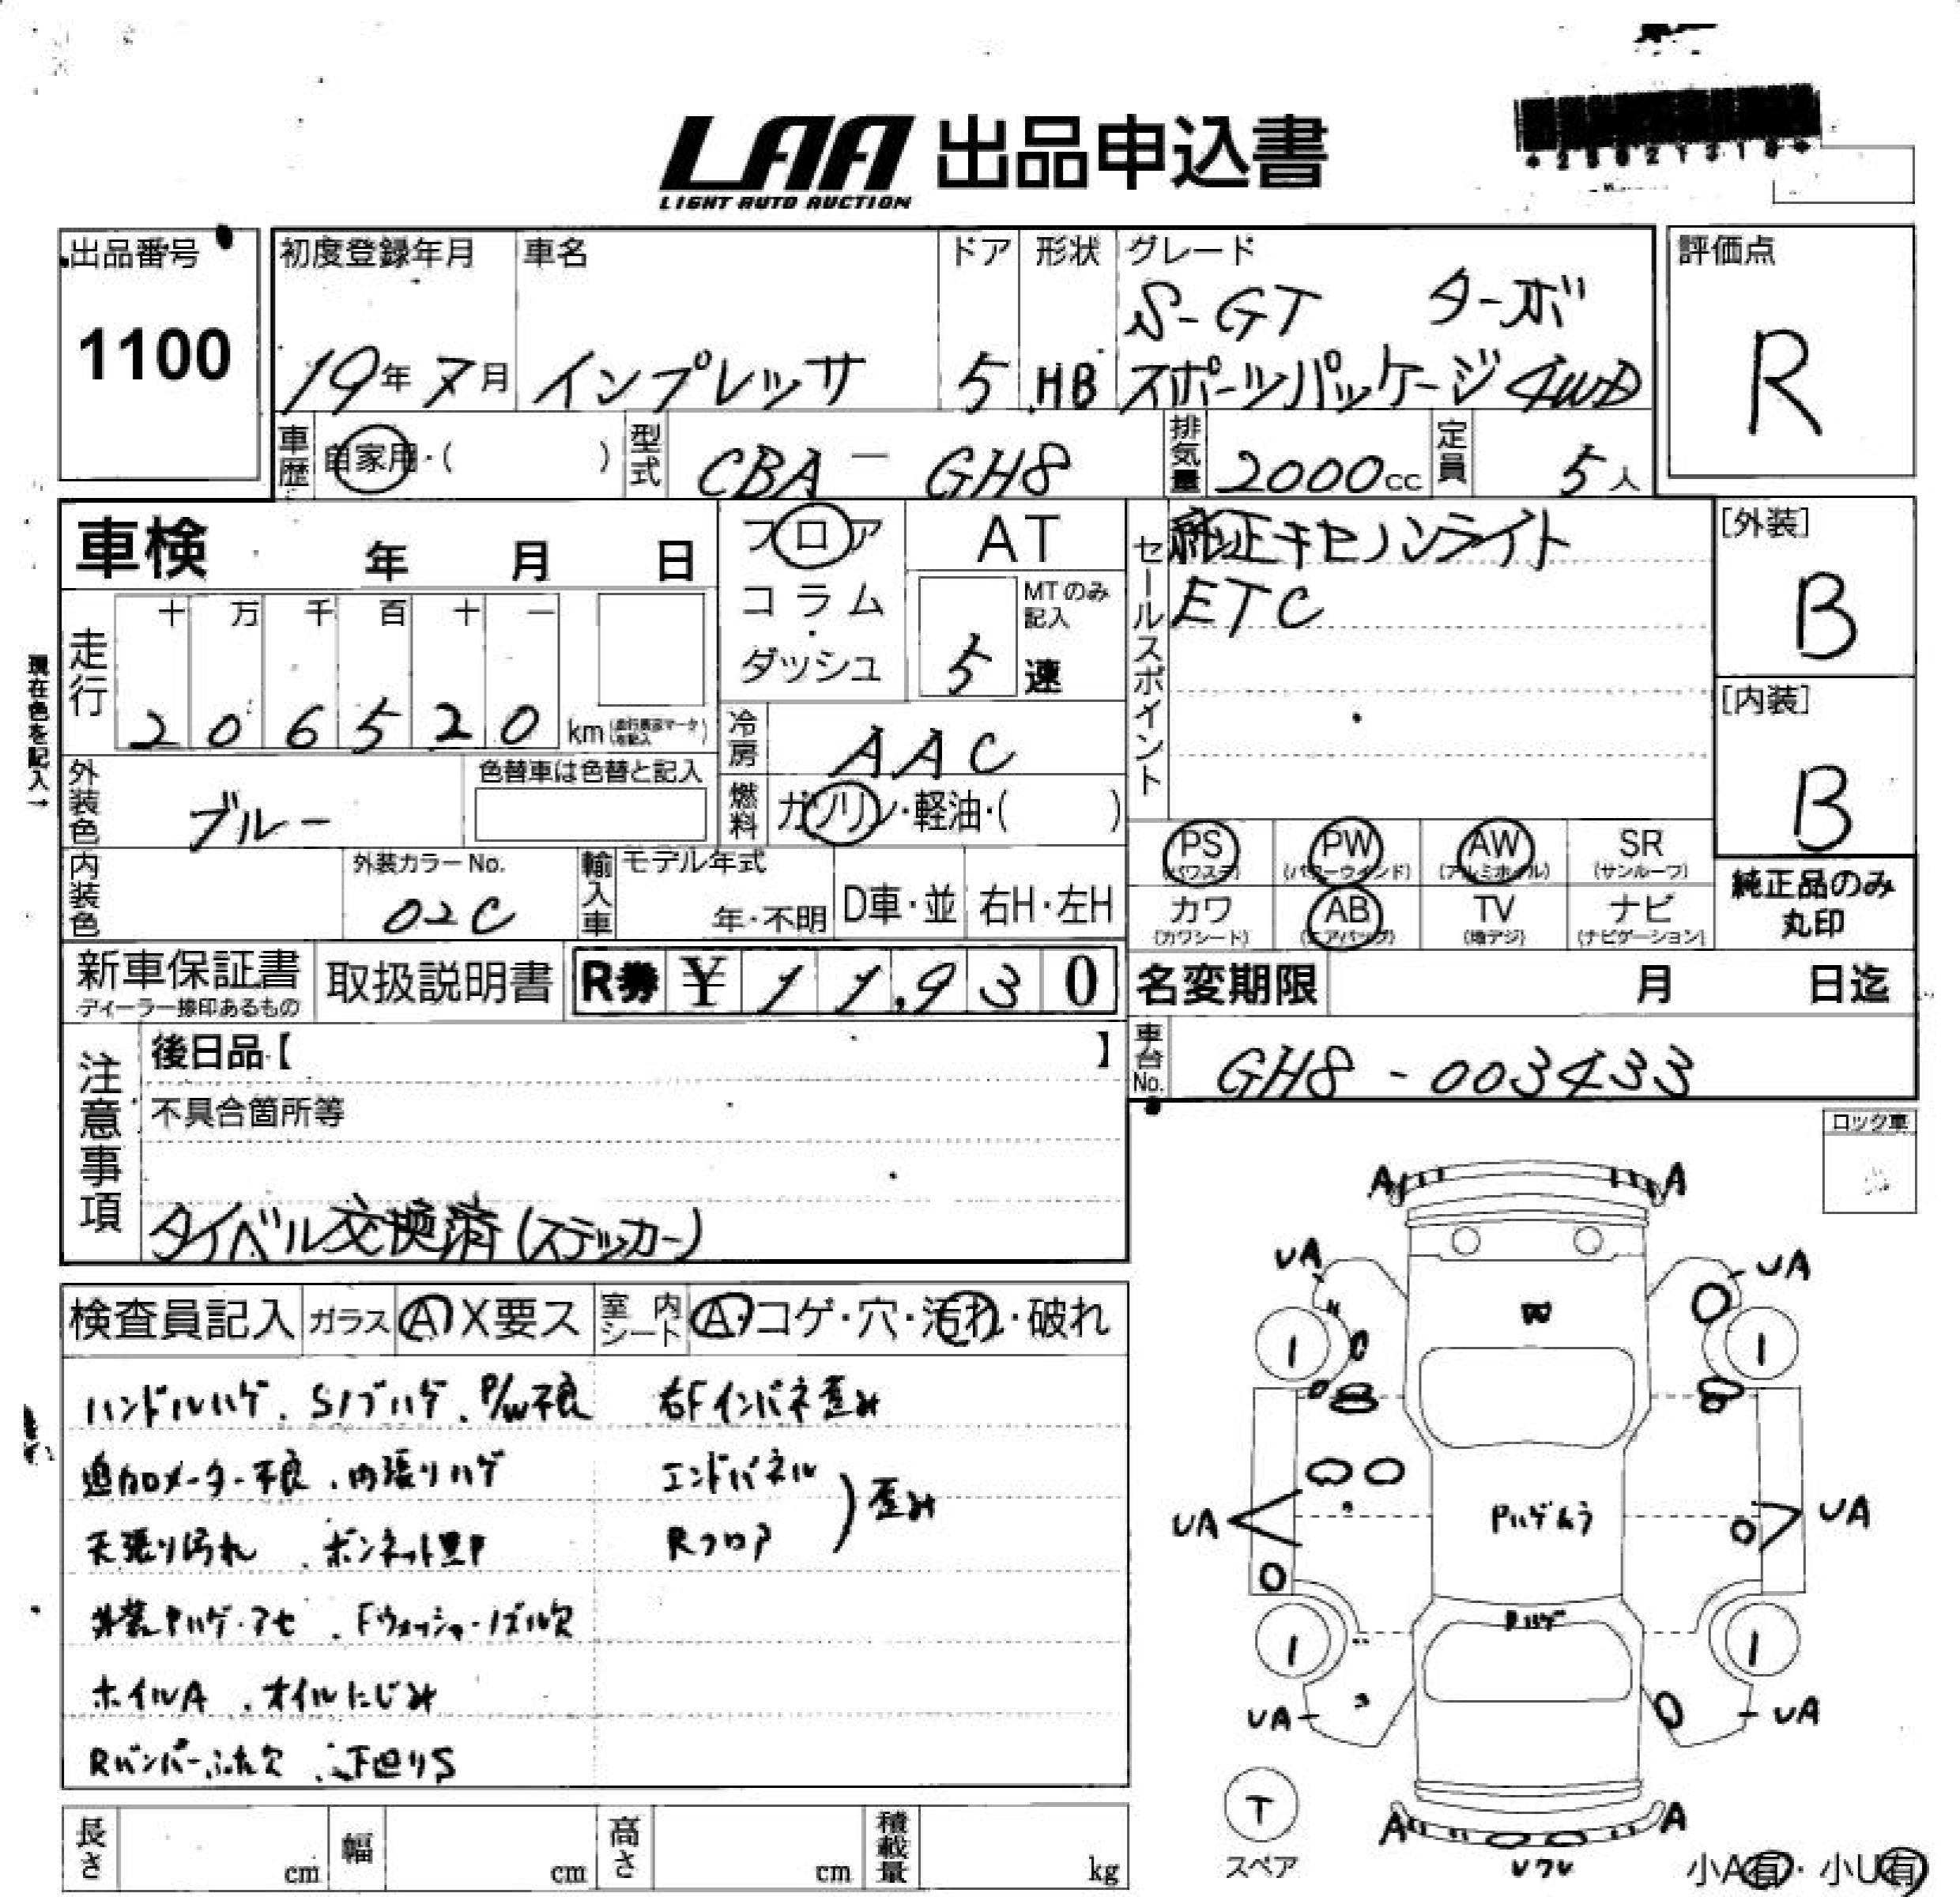 LAA 出品申込書
LIGHT AUTO AUCTION
出品番号
1100
初度登録年月 車名 ドア 形状 グレード
S-GT ターボ
19年7月 インプレッサ 5 HB スポーツパッケージ 4WD
評価点
R
車歴 自家用・( ) 型式 CBA - GH8 排気量 2000cc 定員 5人
車検 年 月 日
フロア
コラム
・
ダッシュ
AT
MTのみ記入
5 速
セールスポイント
純正キセノンライト
ETC
[外装]
B
[内装]
B
現在色を記入→
走行 十 万 千 百 十 一
2 0 6 5 2 0 km
冷房 AAC
外装色 ブルー 色替車は色替と記入
燃料 ガソリン・軽油・( )
PS PW AW SR
(パワステ) (パワーウインド) (アルミホイル) (サンルーフ)
カワ AB TV ナビ
(カワシート) (エアバック) (地デジ) (ナビゲーション)
純正品のみ
丸印
内装色 外装カラーNo. 02C
輸入車 モデル年式 年・不明 D車・並 右H・左H
新車保証書 取扱説明書 R券 ¥ 1 1,9 3 0
ディーラー捺印あるもの
名変期限 月 日迄
車台No. GH8 - 003433
注意事項
後日品【 】
不具合箇所等
タイベル交換済(ステッカー)
ロック車
検査員記入 ガラス A X要ス 室内シート A・コゲ・穴・汚れ・破れ
ハンドルハゲ . Sノブハゲ . P/W不良 右Fインパネ歪み
追加メーター不良 . 内張りハゲ エンドパネル
天張り汚れ . ボンネット黒P Rフロア ) 歪み
外装Pハゲ・アセ . Fウォッシャーノズル欠
ホイルA . オイルにじみ
Rバンパーふた欠 . 下廻りS
A A
UA UA
1 1
UA Pハゲムラ UA
Pハゲ
1 1
UA UA
T
スペア
A A
小A有・小U有
長さ cm 幅 cm 高さ cm 積載量 kg